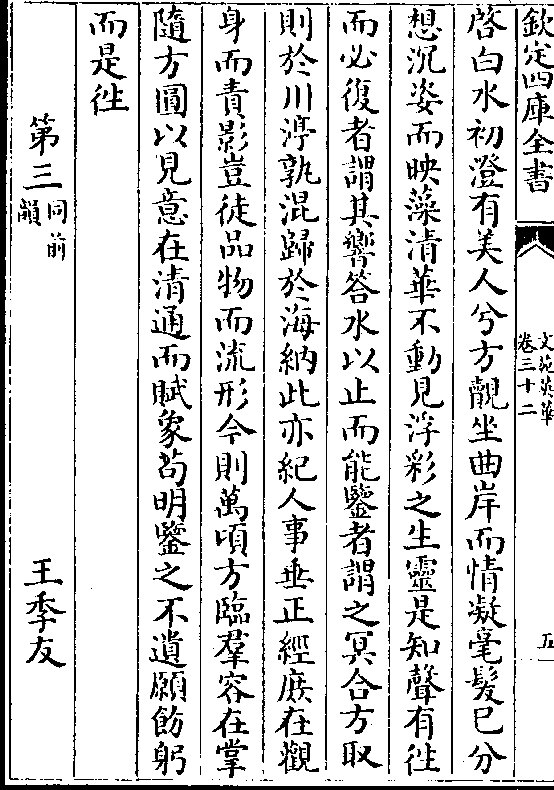 欽定四庫全書
文苑英華
卷三十二
五
啓白水初澄有美人兮方覯坐曲岸而情凝毫髮已分
想沉姿而映藻清華不動見浮彩之生靈是知聲有徃
而必復者謂其響答水以止而能鑒者謂之冥合方取
則於川渟孰混歸於海納此亦紀人事垂正經庶在觀
身而責影豈徒品物而流形今則萬頃方臨羣容在掌
隨方圓以見意在清通而賦象茍明鑒之不遺願飭躬
而是徃
第三同前韻
王季友